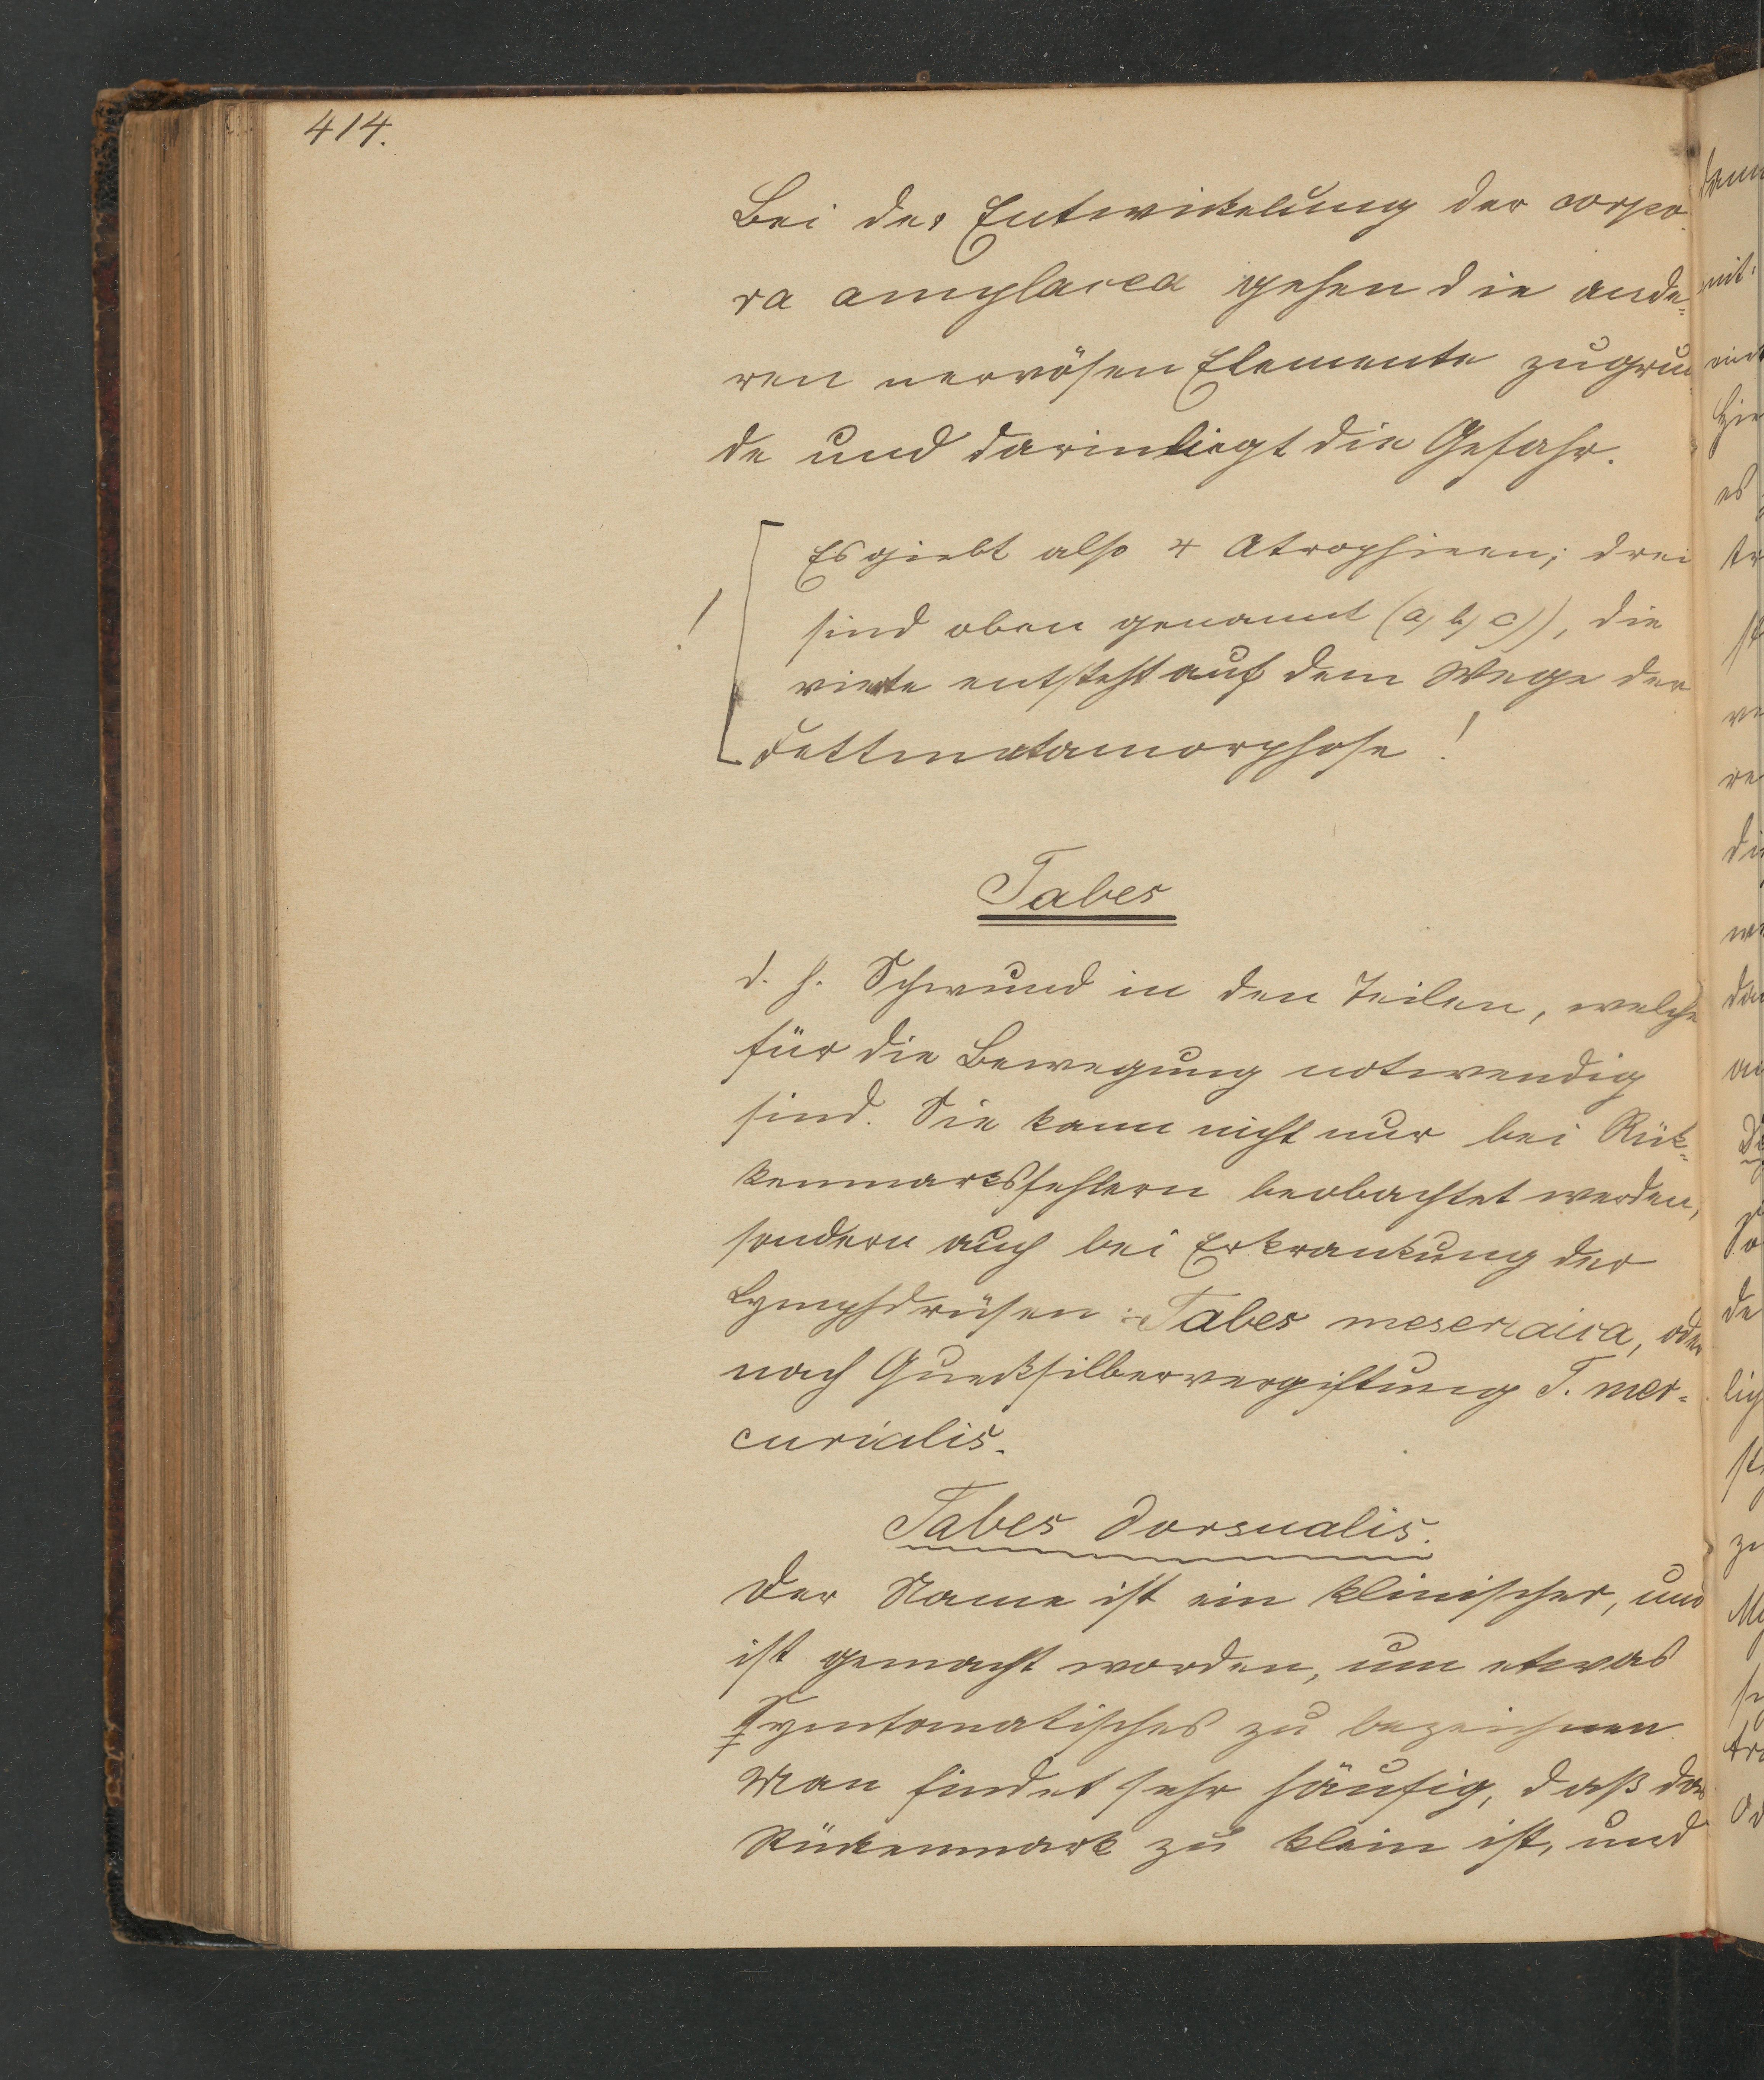 414.
Bei der Entwickelung der corpo
ra amylacea gehen die ande=
ren nervösen Elemente zugrun
de und darin liegt die Gefahr.
Es giebt also 4 Atrophieen; drei
! sind oben genannt (a, b, c)), die
vierte entsteht auf dem Wege der
Fettmetamorphose!
Tabes
d. h. Schwund in den Teilen, welche
für die Bewegung notwendig
sind. Sie kann nicht nur bei Rük=
kenmarksfehlern beobachtet werden,
sondern auch bei Erkrankung der
Lymphdrüsen: Tabes meseraica, oder
nach Quecksilbervergiftung T. mer=
curialis.
Tabes dorsualis.
Der Name ist ein klinischer, und
ist gemacht worden, um etwas
Symtomatisches zu bezeichnen.
Man findet sehr häufig, daß das
Rückenmark zu klein ist, und